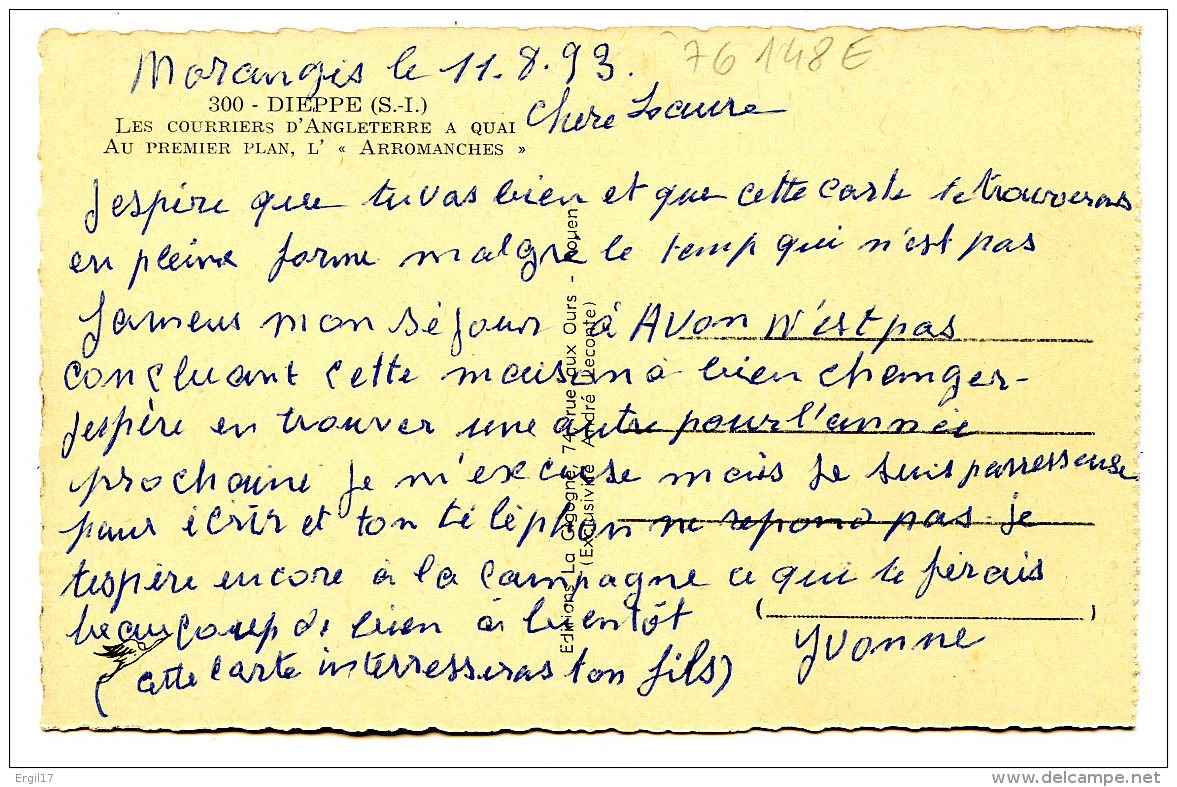 Morangis le 11.8.93.
76 148 E
300 - DIEPPE (S.-I.)
LES COURRIERS D'ANGLETERRE A QUAI
AU PREMIER PLAN, L' « ARROMANCHES »
Chere Laure
Jespère que tu vas bien et que cette carte te trouveras
en pleine forme malgré le temp qui n'est pas
fameux mon séjour à Avon n'est pas
concluant cette maison a bien changer-
Jespère en trouver une autre pour l'année
prochaine je m'excuse mais je suis parresseuse
pour écrir et ton téléphon ne repond pas je
tespère encore à la campagne ce qui te ferais
beaucoup de bien à bientôt
Yvonne
(cette carte interresseras ton fils)
Editions La Cigogne, 74, rue aux Ours - Rouen
(Exclusivité André Leconte)
Ergil17
www.delcampe.net